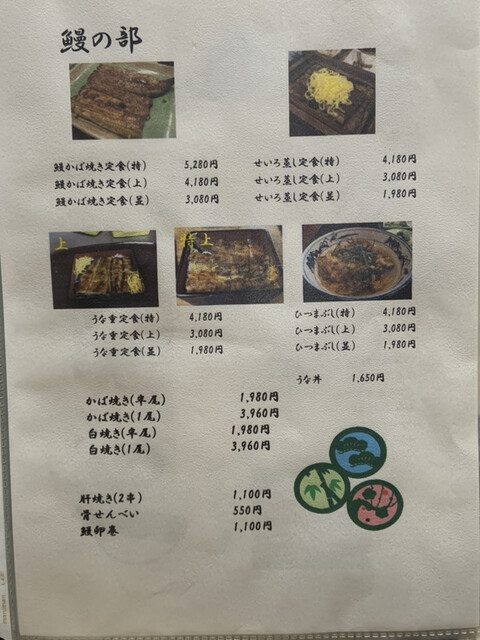 鰻の部
鰻かば焼き定食(特) 5,280円
鰻かば焼き定食(上) 4,180円
鰻かば焼き定食(並) 3,080円
せいろ蒸し定食(特) 4,180円
せいろ蒸し定食(上) 3,080円
せいろ蒸し定食(並) 1,980円
上
特上
うな重定食(特) 4,180円
うな重定食(上) 3,080円
うな重定食(並) 1,980円
ひつまぶし(特) 4,180円
ひつまぶし(上) 3,080円
ひつまぶし(並) 1,980円
うな丼 1,650円
かば焼き(半尾) 1,980円
かば焼き(1尾) 3,960円
白焼き(半尾) 1,980円
白焼き(1尾) 3,960円
肝焼き(2串) 1,100円
骨せんべい 550円
鰻卵巻 1,100円